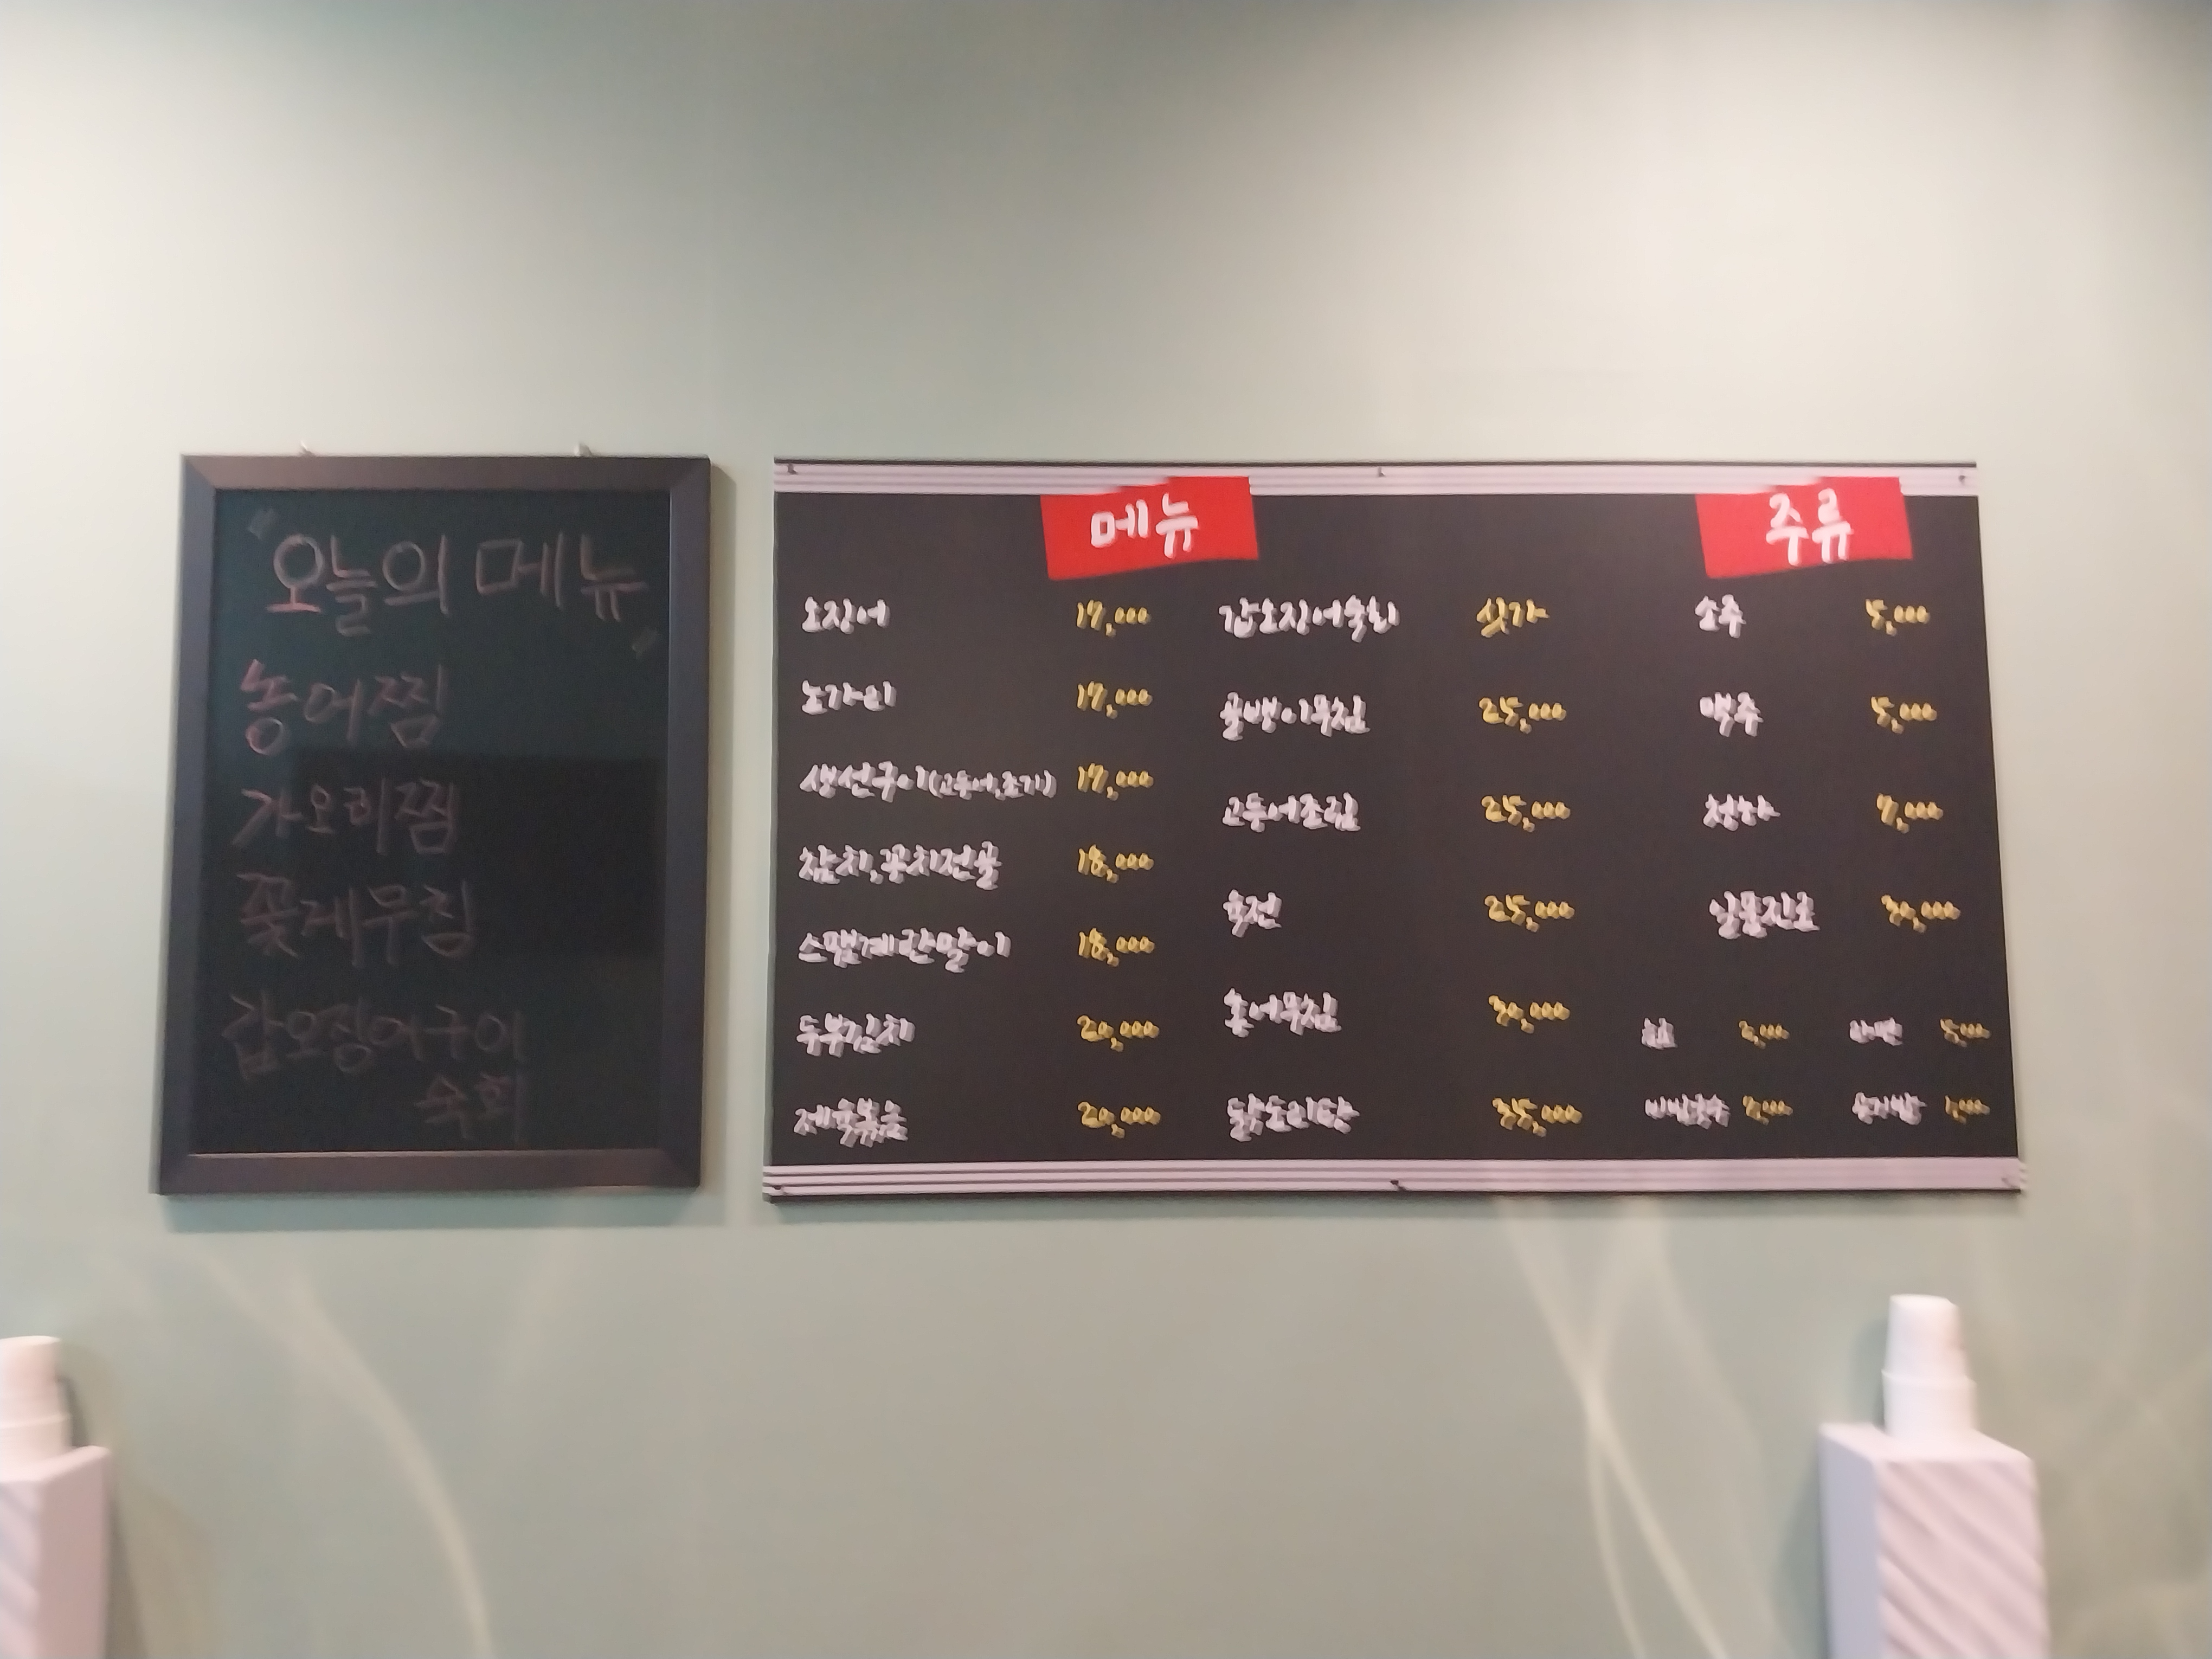 "오늘의 메뉴"
농어찜
가오리찜
꽃게무침
갑오징어구이
숙회
메뉴
오징어 17,000
노가리 17,000
생선구이(고등어,조기) 17,000
참치,꽁치전골 18,000
스팸계란말이 18,000
두부김치 20,000
제육볶음 20,000
갑오징어숙회 싯가
골뱅이무침 25,000
고등어조림 25,000
육전 25,000
홍어무침 30,000
닭도리탕 35,000
주류
소주 5,000
맥주 5,000
청하 7,000
일품진로 30,000
라면 5,000
비빔국수
공기밥 1,000